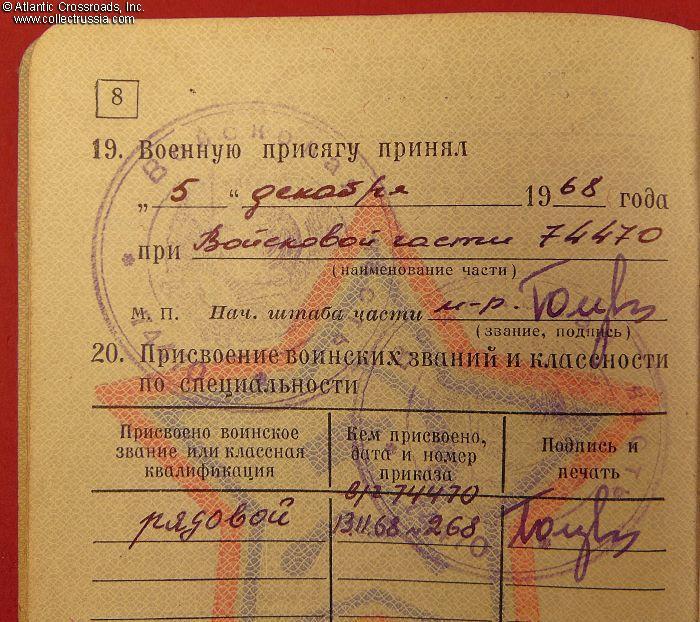 © Atlantic Crossroads, Inc.
www.collectrussia.com
8
19. Военную присягу принял
„ 5 “ декабря 1968 года
при Войсковой части 74470
(наименование части)
М. П. Нач. штаба части м-р.
(звание, подпись)
20. Присвоение воинских званий и классности
по специальности
Присвоено воинское звание или классная квалификация
Кем присвоено, дата и номер приказа
Подпись и печать
в/ч 74470
рядовой 13.11.68 № 268